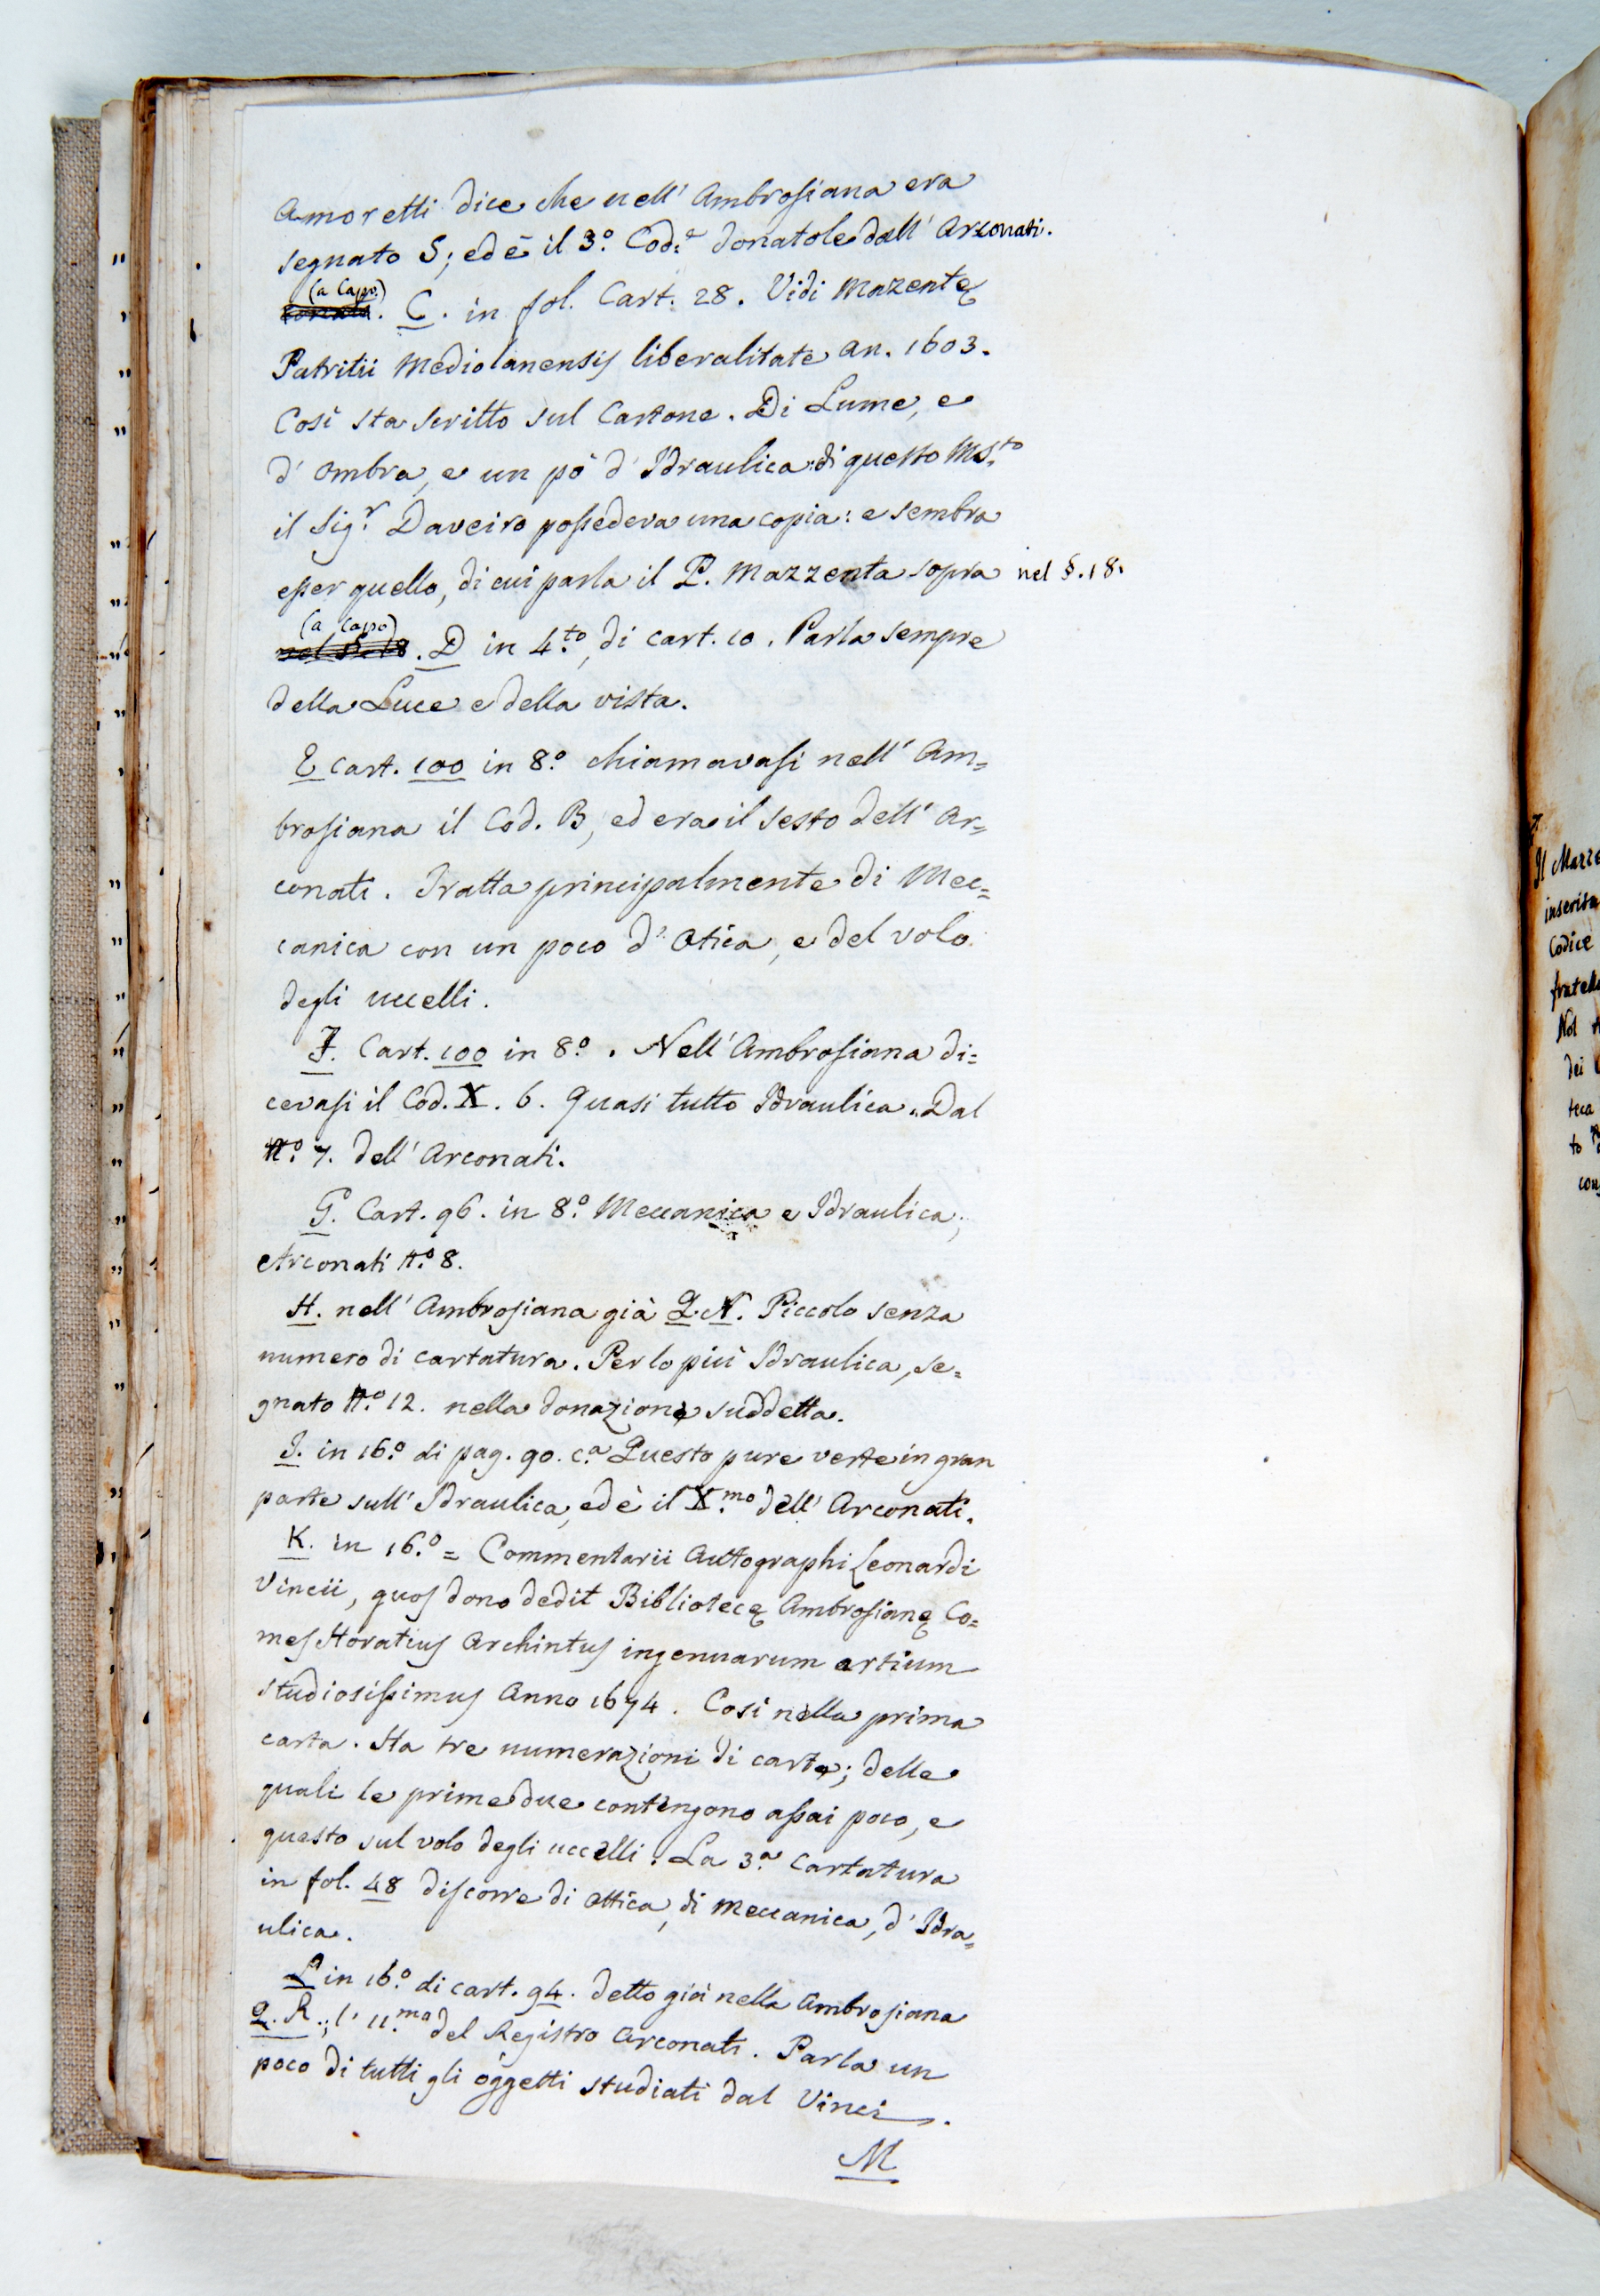 Amoretti dice che nell' Ambrosiana era
segnato S; ed è il 3.º Cod.e donatole dall' Arconati.
(a Capo)
. C. in fol. Cart. 28. Vidi Mazentę
Patritii Mediolanensis liberalitate an. 1603.
Così sta scritto sul Cartone. Di Lume, e
d' ombra, e un pò d' Idraulica: di questo Ms.to
il Sig.r Daveiro possedeva una copia: e sembra
esser quello, di cui parla il P. Mazzenta sopra nel §. 18.
(a Capo)
nel §. 18. D in 4.to, di cart. 10. Parla sempre
della Luce e della vista.
E cart. 100 in 8.º chiamavasi nell' Am=
brosiana il Cod. B, ed era il sesto dell' Ar=
conati. Tratta principalmente di Mec=
canica con un poco d' Otica, e del volo
degli uccelli.
F. Cart. 100 in 8.º. Nell' Ambrosiana di=
cevasi il Cod. X. 6. Quasi tutto Idraulica. Dal
N.º 7. dell' Arconati.
G. Cart. 96. in 8.º Meccanica e Idraulica;
Arconati N.º 8.
H. nell' Ambrosiana già Q. N. Piccolo senza
numero di cartatura. Per lo più Idraulica, se=
gnato N.º 12. nella donazione suddetta.
I. in 16.º di pag. 90. c.a Questo pure verte in gran
parte sull' Idraulica, ed è il X.mo dell' Arconati.
K. in 16.º = Commentarii Autographi Leonardi
Vincii, quos dono dedit Bibliotecę Ambrosianę Co=
mes Horatius Archintus ingenuarum artium
studiosissimus Anno 1674. Così nella prima
carta. Ha tre numerazioni di carte; delle
quali le prime due contengono assai poco, e
questo sul volo degli uccelli. La 3.a cartatura
in fol. 48 discorre di ottica, di meccanica, d' Idra=
ulica.
L in 16.º di cart. 94. detto già nella Ambrosiana
Q. R.; l' 11.mo del Registro Arconati. Parla un
poco di tutti gli oggetti studiati dal Vinci.
M
Il
inserita
Codice
dei
teca
to